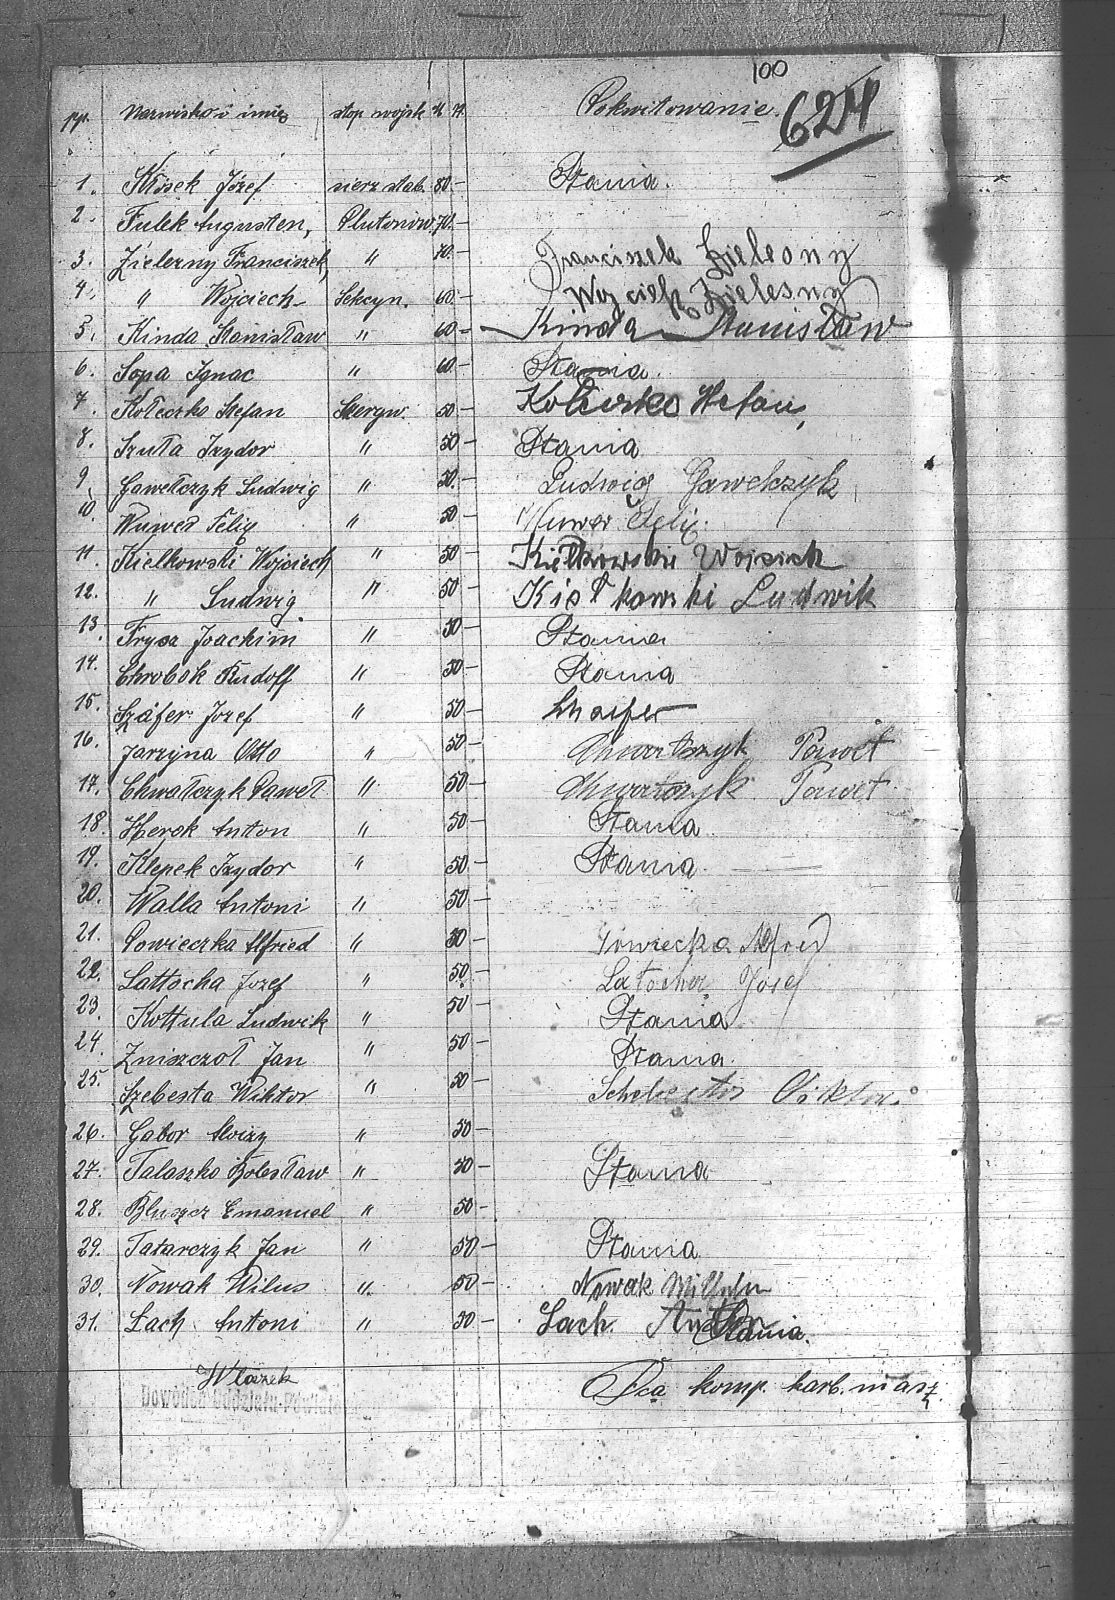 100
pp. Nazwisko i imię stop. wojsk. M. Pokwitowanie. 624
1. Kłósek Józef sierz. stab. 80.- Stania.
2. Fulek Augusten, Plutonow. 70.-
3. Zielezny Franciszek, " 70.- Franciszek Zielezny
4. " Wojciech Sekcyn. 60.- Wojciech Zielesny
5. Kinda Stanisław " 60- Kinda Stanisław
6. Sopa Ignac " 60.- Stania.
7. Kołeczko Stefan Szeryw. 50- Stefan,
8. Szuła Izydor " 50- Stania
9. Gawełczyk Ludwig " 50.- Ludwig Gawelczyk
10. Wuwer Felix " 50- Wuwer Felix.
11. Kielkowski Wojciech " 50- Kiełkowski
12. " Ludwig " 50- Kiołkowski Ludwik
13. Frysz Joachim " 50- Stania
14. Chrobok Rudolf " 50- Stania
15. Száfer Jozef " 50-
16. Jarzyna Otto " 50- Chwałczyk Paweł
17. Chwałczyk Paweł " 50- Chwałczyk Paweł
18. Herok Anton " 50- Stania
19. Klepek Izydor " 50- Stania.
20. Walla Antoni " 50-
21. Powieczka Alfried " 50- Alfred
22. Lattocha Jozef " 50. Latocha Josef
23. Kottula Ludwik " 50- Stania
24. Zniszczoł Jan " 50- Stania.
25. Szebesta Wiktor " 50-
26. Gabor Aloizy " 50-
27. Talaszko Bolesław " 50- Stania
28. Bluszcz Emanuel " 50-
29. Tatarczyk Jan " 50- Stania
30. Nowak Wilus " 50- Nowak Wilhelm
31. Łach Antoni " 50- Lach. Stania.
Wlazek Dca komp. karb. masz.
Dowódca Oddziału Powstań